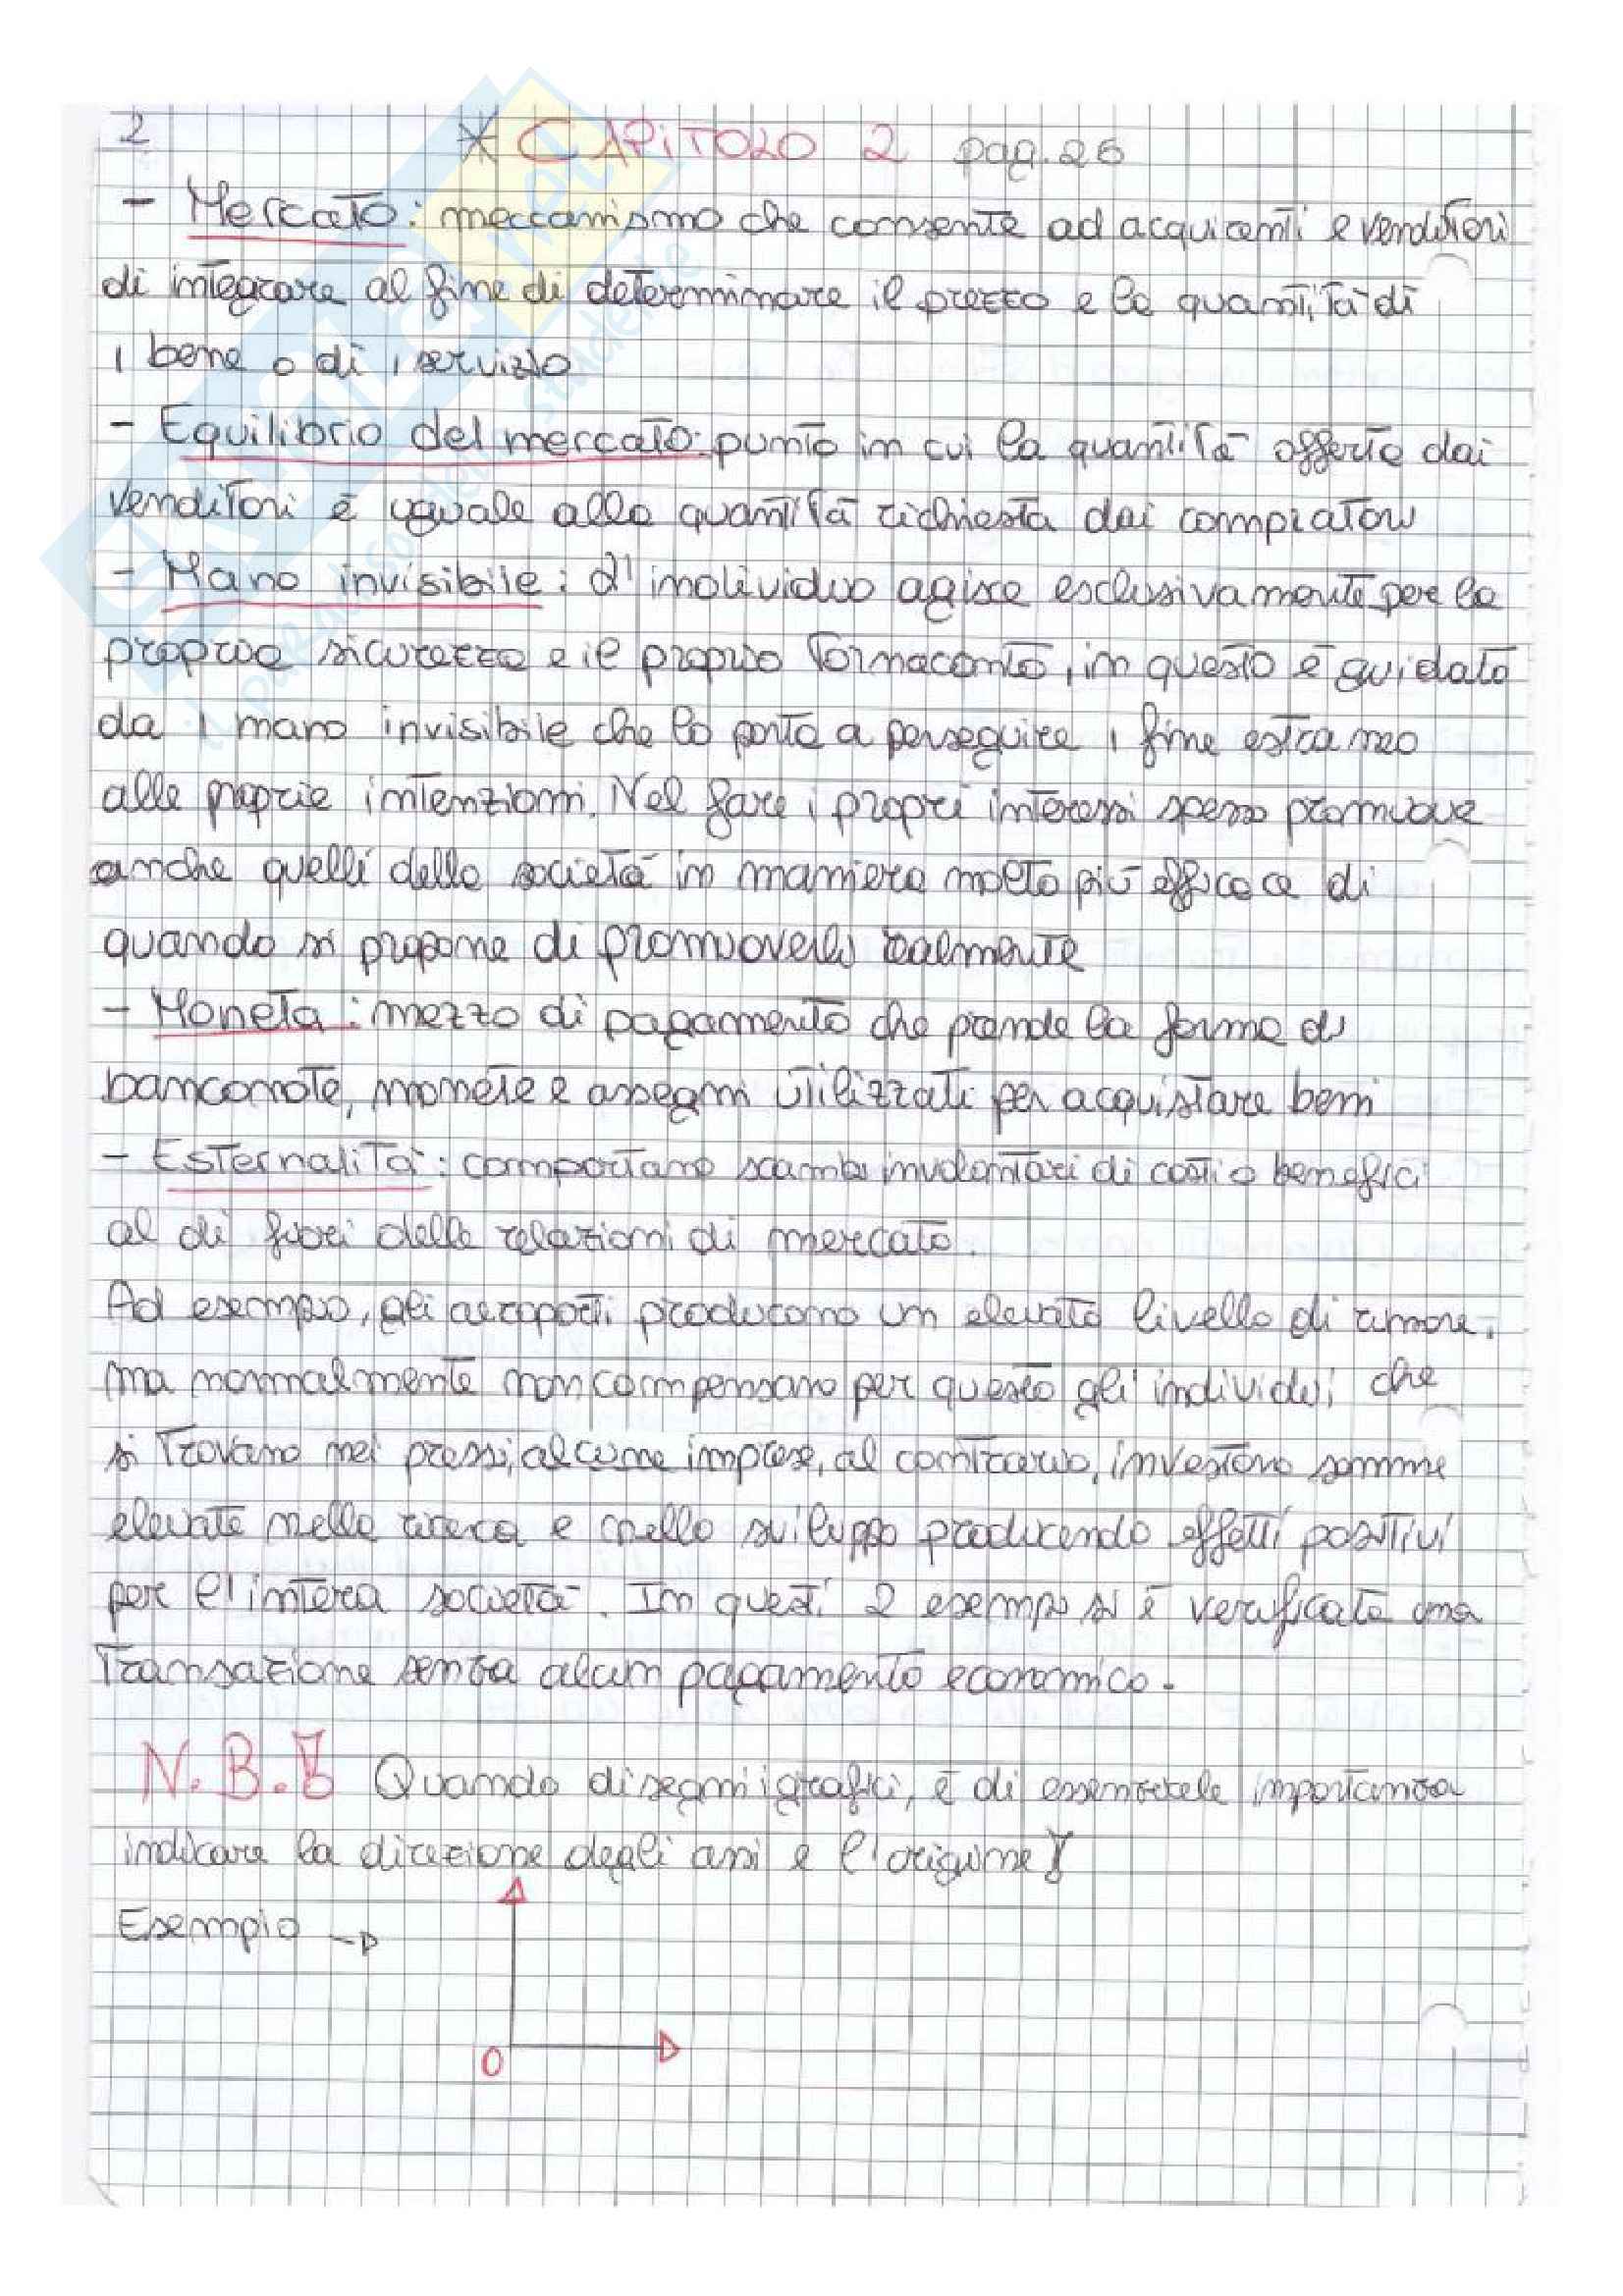 2
* CAPITOLO 2 pag. 26
- Mercato: meccanismo che consente ad acquirenti e venditori
di integrare al fine di determinare il prezzo e la quantità di
1 bene o di 1 servizio
- Equilibrio del mercato: punto in cui la quantità offerta dai
venditori è uguale alla quantità richiesta dai compratori
- Mano invisibile: l'individuo agisce esclusivamente per la
propria sicurezza e il proprio tornaconto, in questo è guidato
da 1 mano invisibile che lo porta a perseguire 1 fine estraneo
alle proprie intenzioni. Nel fare i propri interessi spesso promuove
anche quelli della società in maniera molto più efficace di
quando si propone di promuoverli realmente
- Moneta: mezzo di pagamento che prende la forma di
banconote, monete e assegni utilizzati per acquistare beni
- Esternalità: comportano scambi involontari di costi o benefici
al di fuori delle relazioni di mercato.
Ad esempio, gli aeroporti producono un elevato livello di rumore.
ma normalmente non compensano per questo gli individui che
si trovano nei pressi, alcune imprese, al contrario, investono somme
elevate nella ricerca e nello sviluppo producendo effetti positivi
per l'intera società. In questi 2 esempi si è verificata una
transazione senza alcun pagamento economico.
N.B.! Quando disegni i grafici, è di essenziale importanza
indicare la direzione degli assi e l'origine!
Esempio →
0
SKUOLA.net
il paradiso dello studente